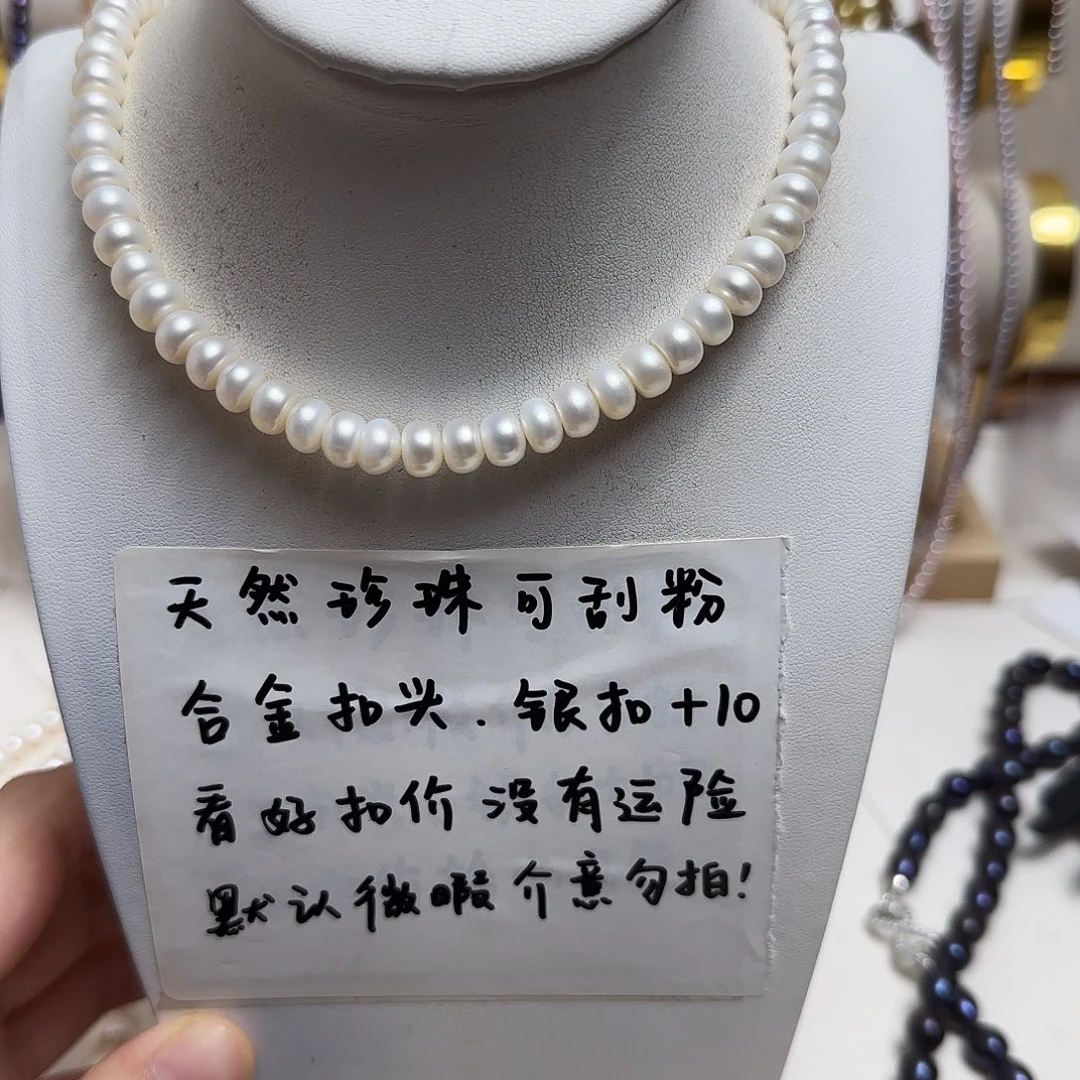 天然珍珠可刮粉
合金扣头.银扣+10
看好扣价没有运险
默认微暇介意勿拍!